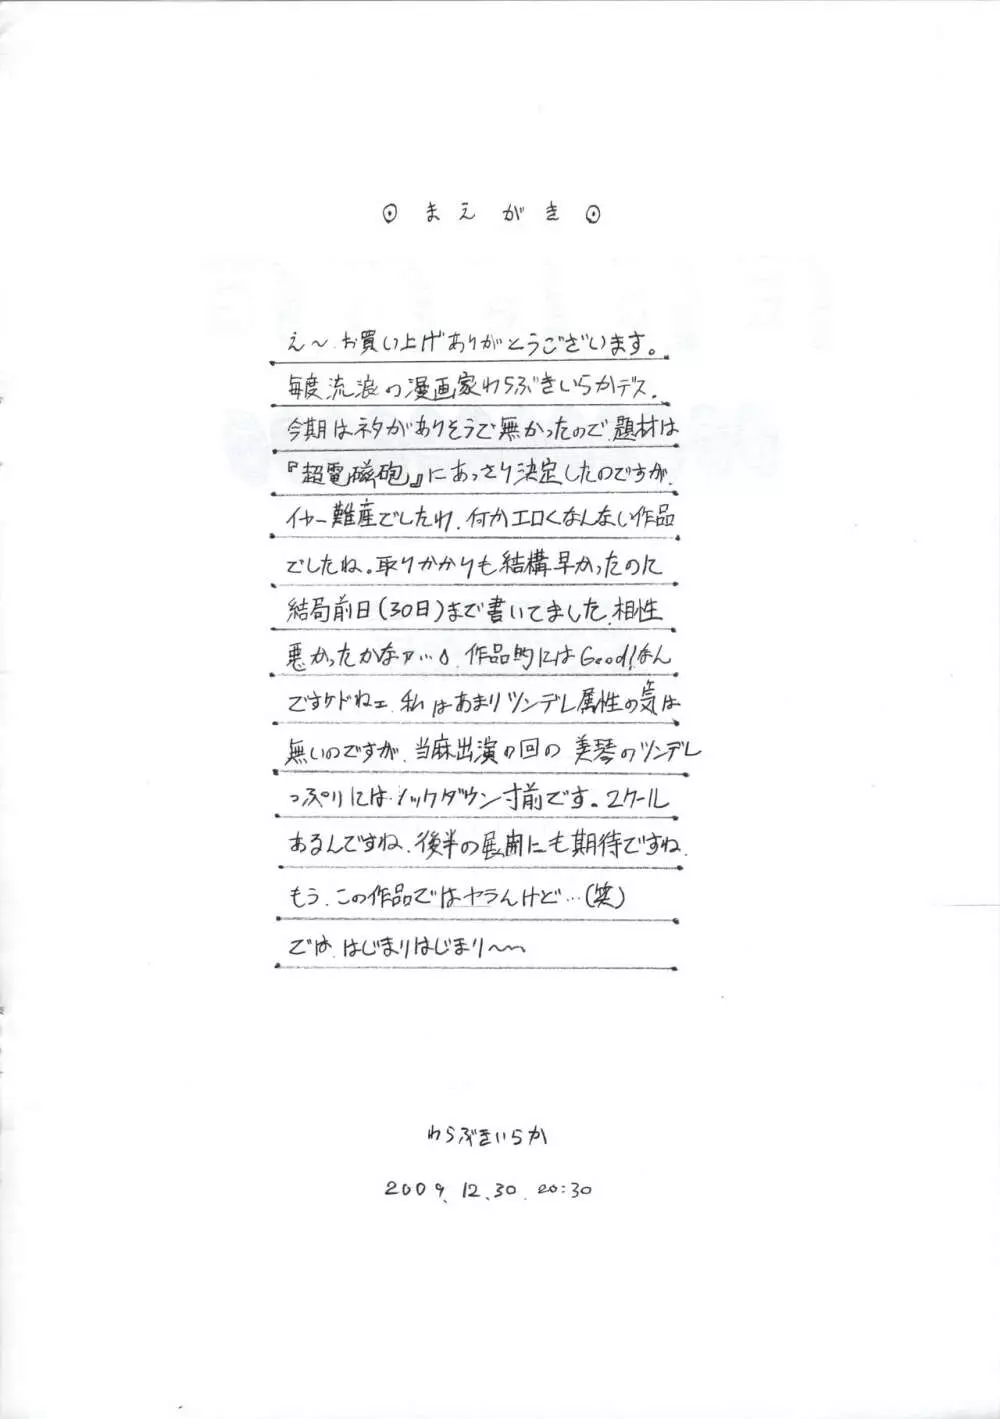 ◎ まえがき ◎
え～お買い上げありがとうございます。
毎度流浪の漫画家わらぶきいらかデス.
今期はネタがありそうで無かったので.題材は
『超電磁砲』にあっさり決定したのですが.
イヤー難産でしたわ.何かエロくなんない作品
でしたね。取りかかりも結構早かったのに
結局前日(30日)まで書いてました.相性
悪かったかなァ….作品的にはGood!なん
ですケドねェ.私はあまりツンデレ属性の気は
無いのですが.当麻出演の回の美琴のツンデレ
っぷりにはノックダウン寸前です。2クール
あるんですね.後半の展開にも期待ですね.
もう.この作品ではヤラんけど…(笑)
では.はじまりはじまり〜〜
わらぶきいらか
2009.12.30.20:30